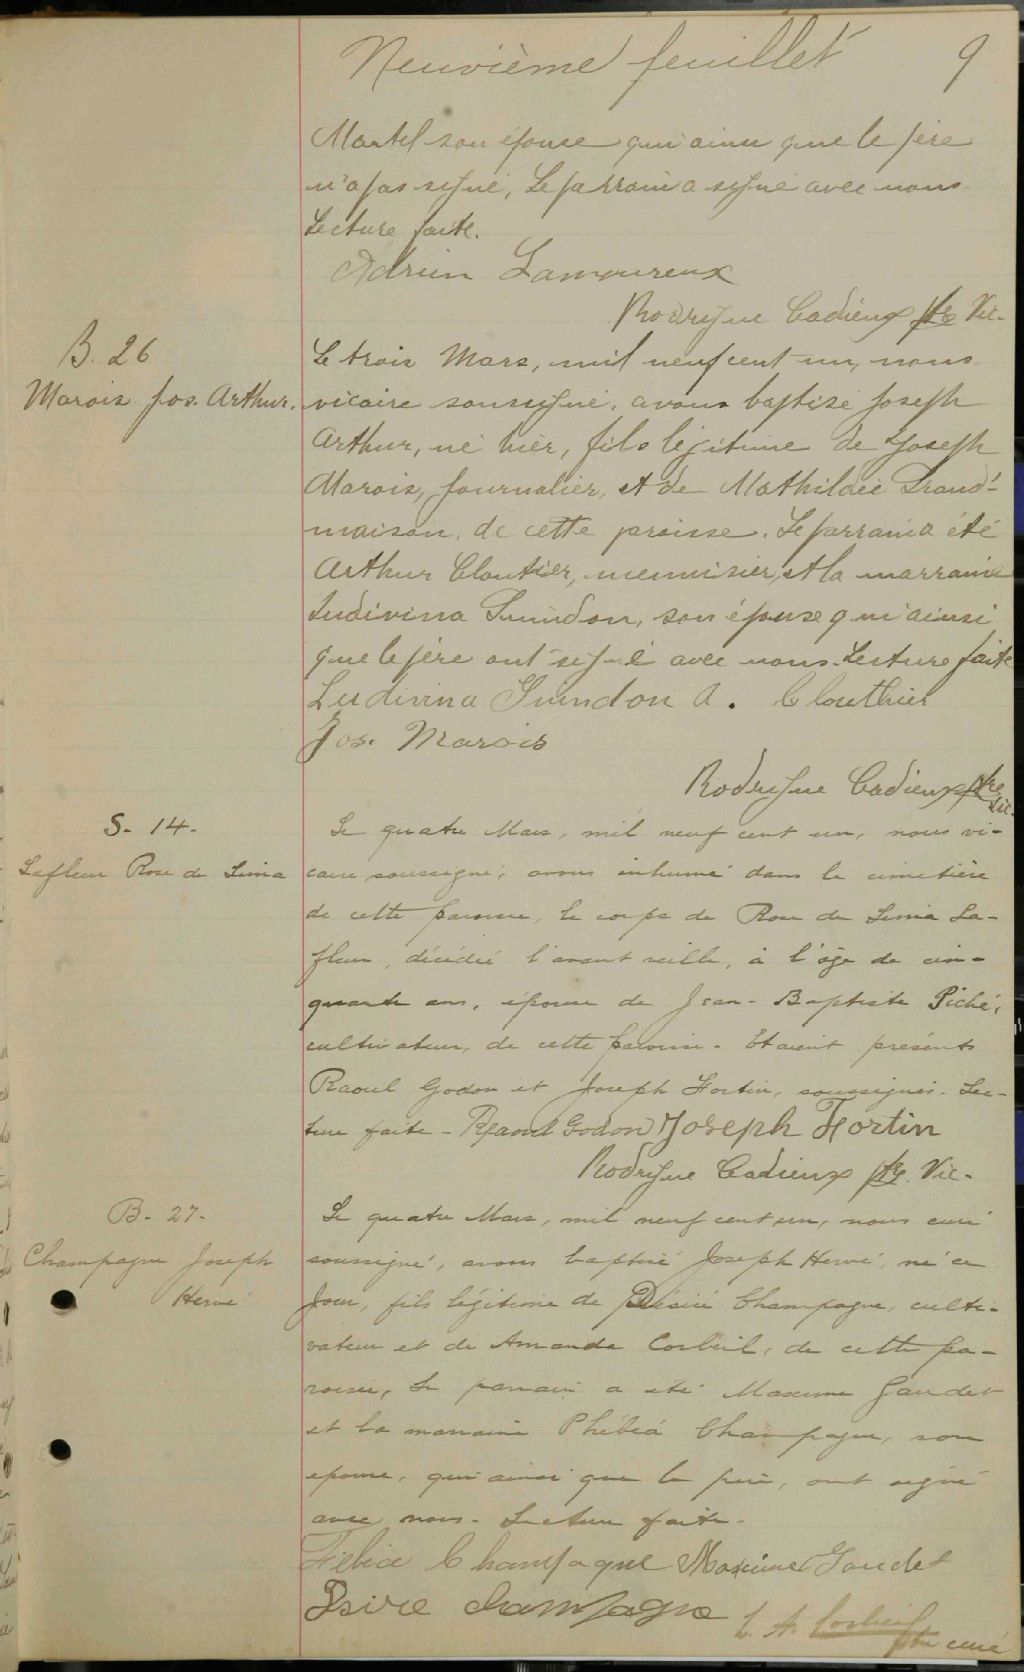 Neuvième feuillet 9
Martel son épouse qui ainsi que le père
n'a pas signé, Le parrain a signé avec nous
Lecture faite.
Adrien Lamoureux
Rodrigue Cadieux ptre Vic.
B. 26
Marois Jos. Arthur.
Le trois Mars, mil neuf cent un, nous
vicaire soussigné, avons baptisé Joseph
Arthur, né hier, fils légitime de Joseph
Marois, journalier, et de Mathildée Grand'-
maison, de cette proisse. Le parrain a été
Arthur Cloutier, menuisier, et la marraine
Ludivina Guindon, son épouse qui ainsi
que le père ont signé avec nous. Lecture faite
Ludivina Guindon A. Clouthier
Jos. Marois
Rodrigue Cadieux ptre Vic.
S. 14.
Lafleur Rose de Lima
Le quatre Mars, mil neuf cent un, nous vi-
caire soussigné, avons inhumé dans le cimetière
de cette paroisse, le corps de Rose de Lima La-
fleur, décédée l'avant veille, à l'âge de cin-
quante ans, épouse de Jean-Baptiste Piché,
cultivateur, de cette paroisse. Etaient présents
Raoul Godon et Joseph Fortin, soussignés. Lec-
ture faite - Raoul Godon Joseph Fortin
Rodrigue Cadieux ptre. Vic.
B. 27.
Champagne Joseph
Hervé
Le quatre Mars, mil neuf cent un, nous curé
soussigné, avons baptisé Joseph Hervé, né ce
jour, fils légitime de Désiré Champagne, culti-
vateur et de Amanda Corbeil, de cette pa-
roisse, Le parrain a été Maxime Gaudet
et la marraine Phébéa Champagne, son
épouse, qui ainsi que le père, ont signé
avec nous. Lecture faite.
Fébia Champagne Maxime Gaudet
Dsire champagne
L. A. Corbeil
ptre curé